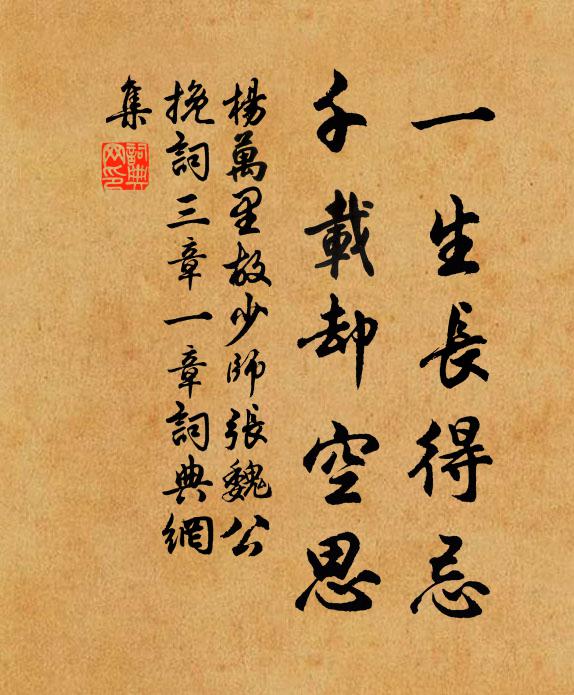 一生長得忌
千載却空思
楊萬里故少師張魏公
挽詞三章一章詞典網
集
詞典
网印